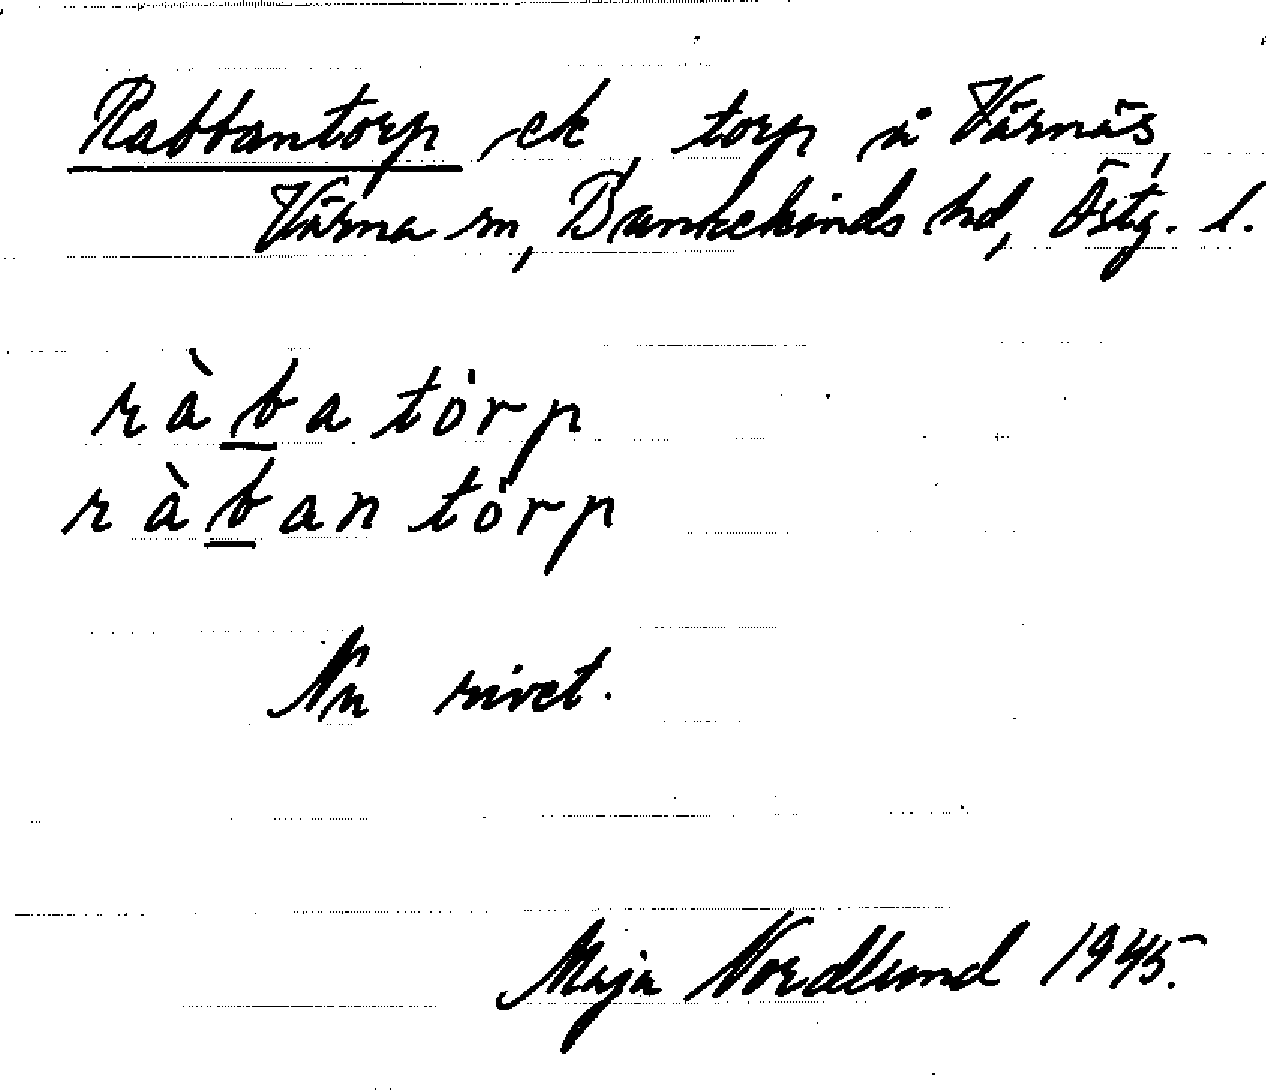 Rabbantorp ek torp å Värnäs
Värna sn, Bankekinds hd, Östg. l.
ràbatòrp
ràbantòrp
Nu rivet.
Maja Nordlund 1945.